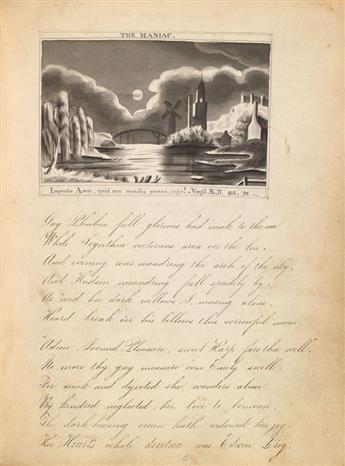 THE MANIAC.
Improbe Amor, quid non mortalia pectora, cogis! Virgil Æ. IV.
Gay Phoebus full glorious had sunk to the sea
While Cynthia victorious arose on the lea.
And evening was wandring the arch of the sky.
And Hudson meandring full speedily by.
As mid his dark willows I, musing alone.
Heard break o'er his billows this sorrowful moan.
Adieu Jocund Pleasure, sweet Harp fare thee well.
No more thy gay measure can Emily swell.
For sunk and dejected she wanders alone.
By kindred neglected her love to bemoan.
The dark heaving ocean hath widowed her joy.
Her Heart's whole devotion was Edwin Leroy.